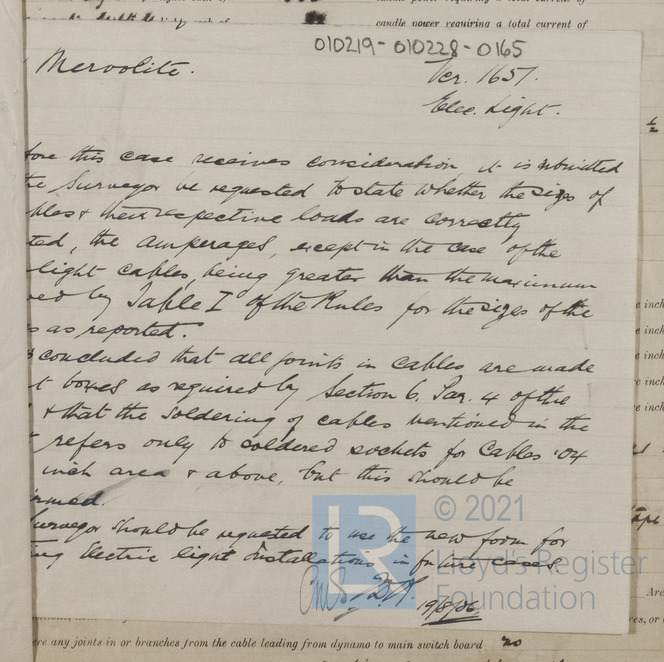 candle power requiring a total current of
candle power requiring a total current of
010219-010228-0165
Mervolite.
Ver. 1657.
Elec. Light.
fore this case receives consideration it is submitted
the Surveyor be requested to state whether the sizes of
bles & their respective loads are correctly
ted, the amperages, except in the case of the
light cables, being greater than the maximum
ved by Table I of the Rules for the sizes of the
s as reported.
concluded that all joints in cables are made
t boxes as required by Section 6, Par. 4 of the
& that the soldering of cables mentioned in the
refers only to soldered sockets for cables .04
inch area & above, but this should be
irmed.
Surveyor should be requested to use the new form for
ing Electric light installations in future cases.
19/8/26
© 2021
LR
Lloyd's Register
Foundation
e inch
e inch
e inch
e inch
tape
Ar
res, or
ere any joints in or branches from the cable leading from dynamo to main switch board no